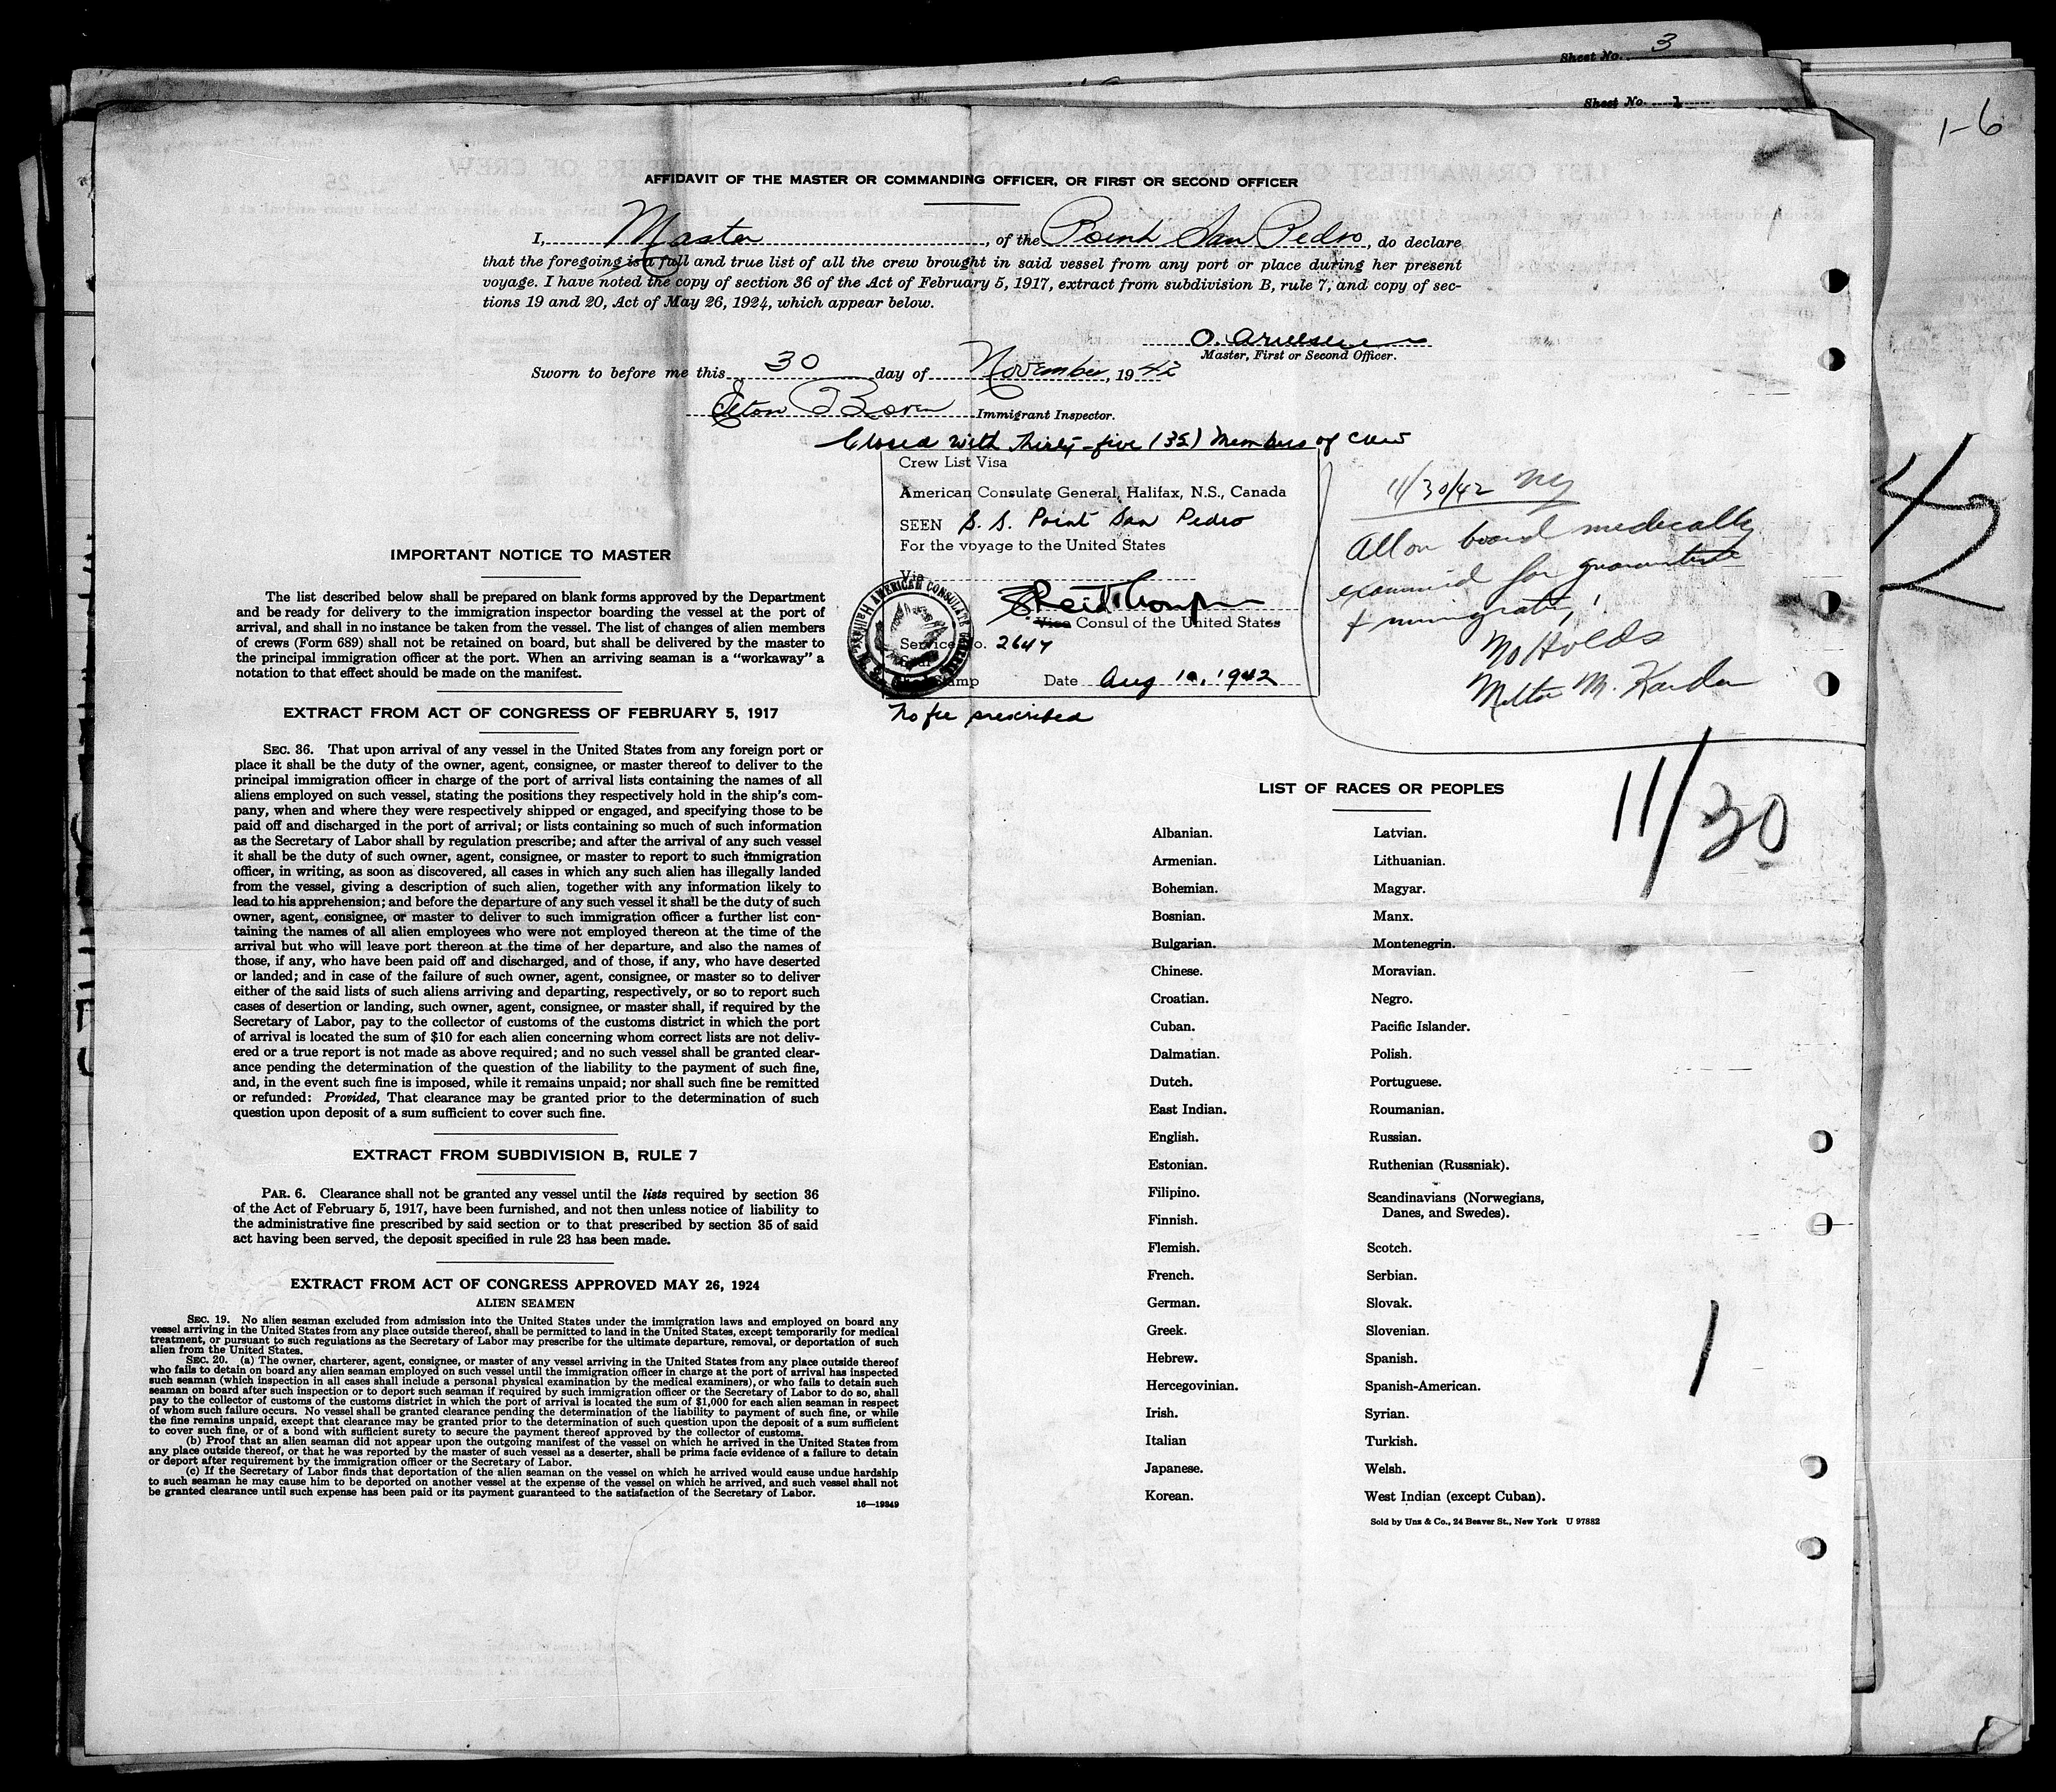 Sheet No. 3
Sheet No. 1
1-6
AFFIDAVIT OF THE MASTER OR COMMANDING OFFICER, OR FIRST OR SECOND OFFICER
I, Master, of the Point San Pedro, do declare
that the foregoing is a full and true list of all the crew brought in said vessel from any port or place during her present
voyage. I have noted the copy of section 36 of the Act of February 5, 1917, extract from subdivision B, rule 7, and copy of sec-
tions 19 and 20, Act of May 26, 1924, which appear below.
O.
Master, First or Second Officer.
Sworn to before me this 30 day of November, 1942
Immigrant Inspector.
Closed with Thirty-five (35) Members of crew
Crew List Visa
American Consulate General, Halifax, N.S., Canada
SEEN S. S. Point San Pedro
For the voyage to the United States
Via
Vice Consul of the United States
Service No. 2647
Date Aug 10, 1942
No fee prescribed
11/30/42 NY
All on board medically
examined for quarantine
& immigration
No Holds
Milton M.
42
11/30
IMPORTANT NOTICE TO MASTER
The list described below shall be prepared on blank forms approved by the Department
and be ready for delivery to the immigration inspector boarding the vessel at the port of
arrival, and shall in no instance be taken from the vessel. The list of changes of alien members
of crews (Form 689) shall not be retained on board, but shall be delivered by the master to
the principal immigration officer at the port. When an arriving seaman is a "workaway" a
notation to that effect should be made on the manifest.
EXTRACT FROM ACT OF CONGRESS OF FEBRUARY 5, 1917
SEC. 36. That upon arrival of any vessel in the United States from any foreign port or
place it shall be the duty of the owner, agent, consignee, or master thereof to deliver to the
principal immigration officer in charge of the port of arrival lists containing the names of all
aliens employed on such vessel, stating the positions they respectively hold in the ship's com-
pany, when and where they were respectively shipped or engaged, and specifying those to be
paid off and discharged in the port of arrival; or lists containing so much of such information
as the Secretary of Labor shall by regulation prescribe; and after the arrival of any such vessel
it shall be the duty of such owner, agent, consignee, or master to report to such immigration
officer, in writing, as soon as discovered, all cases in which any such alien has illegally landed
from the vessel, giving a description of such alien, together with any information likely to
lead to his apprehension; and before the departure of any such vessel it shall be the duty of such
owner, agent, consignee, or master to deliver to such immigration officer a further list con-
taining the names of all alien employees who were not employed thereon at the time of the
arrival but who will leave port thereon at the time of her departure, and also the names of
those, if any, who have been paid off and discharged, and of those, if any, who have deserted
or landed; and in case of the failure of such owner, agent, consignee, or master so to deliver
either of the said lists of such aliens arriving and departing, respectively, or so to report such
cases of desertion or landing, such owner, agent, consignee, or master shall, if required by the
Secretary of Labor, pay to the collector of customs of the customs district in which the port
of arrival is located the sum of $10 for each alien concerning whom correct lists are not deliv-
ered or a true report is not made as above required; and no such vessel shall be granted clear-
ance pending the determination of the question of the liability to the payment of such fine,
and, in the event such fine is imposed, while it remains unpaid; nor shall such fine be remitted
or refunded: Provided, That clearance may be granted prior to the determination of such
question upon deposit of a sum sufficient to cover such fine.
EXTRACT FROM SUBDIVISION B, RULE 7
PAR. 6. Clearance shall not be granted any vessel until the lists required by section 36
of the Act of February 5, 1917, have been furnished, and not then unless notice of liability to
the administrative fine prescribed by said section or to that prescribed by section 35 of said
act having been served, the deposit specified in rule 23 has been made.
EXTRACT FROM ACT OF CONGRESS APPROVED MAY 26, 1924
ALIEN SEAMEN
SEC. 19. No alien seaman excluded from admission into the United States under the immigration laws and employed on board any
vessel arriving in the United States from any place outside thereof, shall be permitted to land in the United States, except temporarily for medical
treatment, or pursuant to such regulations as the Secretary of Labor may prescribe for the ultimate departure, removal, or deportation of such
alien from the United States.
SEC. 20. (a) The owner, charterer, agent, consignee, or master of any vessel arriving in the United States from any place outside thereof
who fails to detain on board any alien seaman employed on such vessel until the immigration officer in charge at the port of arrival has inspected
such seaman (which inspection in all cases shall include a personal physical examination by the medical examiners), or who fails to detain such
seaman on board after such inspection or to deport such seaman if required by such immigration officer or the Secretary of Labor to do so, shall
pay to the collector of customs of the customs district in which the port of arrival is located the sum of $1,000 for each alien seaman in respect
of whom such failure occurs. No vessel shall be granted clearance pending the determination of the liability to payment of such fine, or while
the fine remains unpaid, except that clearance may be granted prior to the determination of such question upon the deposit of a sum sufficient
to cover such fine, or of a bond with sufficient surety to secure the payment thereof approved by the collector of customs.
(b) Proof that an alien seaman did not appear upon the outgoing manifest of the vessel on which he arrived in the United States from
any place outside thereof, or that he was reported by the master of such vessel as a deserter, shall be prima facie evidence of a failure to detain
or deport after requirement by the immigration officer or the Secretary of Labor.
(c) If the Secretary of Labor finds that deportation of the alien seaman on the vessel on which he arrived would cause undue hardship
to such seaman he may cause him to be deported on another vessel at the expense of the vessel on which he arrived, and such vessel shall not
be granted clearance until such expense has been paid or its payment guaranteed to the satisfaction of the Secretary of Labor.
16—19349
LIST OF RACES OR PEOPLES
Albanian.
Armenian.
Bohemian.
Bosnian.
Bulgarian.
Chinese.
Croatian.
Cuban.
Dalmatian.
Dutch.
East Indian.
English.
Estonian.
Filipino.
Finnish.
Flemish.
French.
German.
Greek.
Hebrew.
Hercegovinian.
Irish.
Italian
Japanese.
Korean.
Latvian.
Lithuanian.
Magyar.
Manx.
Montenegrin.
Moravian.
Negro.
Pacific Islander.
Polish.
Portuguese.
Roumanian.
Russian.
Ruthenian (Russniak).
Scandinavians (Norwegians,
Danes, and Swedes).
Scotch.
Serbian.
Slovak.
Slovenian.
Spanish.
Spanish-American.
Syrian.
Turkish.
Welsh.
West Indian (except Cuban).
Sold by Unz & Co., 24 Beaver St., New York U 97882